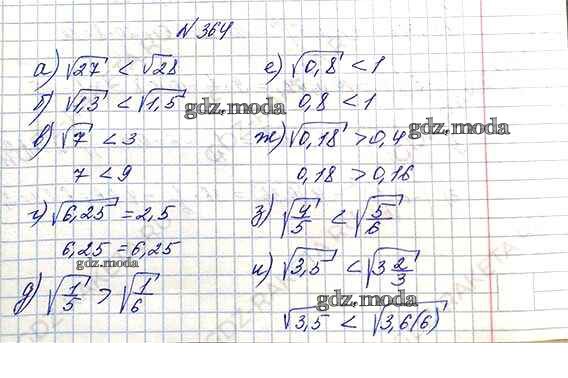 N 364
а) √27 < √28
б) √1,3 < √1,5
в) √7 < 3
7 < 9
г) √6,25 = 2,5
6,25 = 6,25
д) √1/5 > √1/6
е) √0,8 < 1
0,8 < 1
ж) √0,18 > 0,4
0,18 > 0,16
з) √4/5 < √5/6
и) √3,5 < √3 2/3
√3,5 < √3,6(6)
gdz.moda
gdz.moda
gdz.moda
gdz.moda